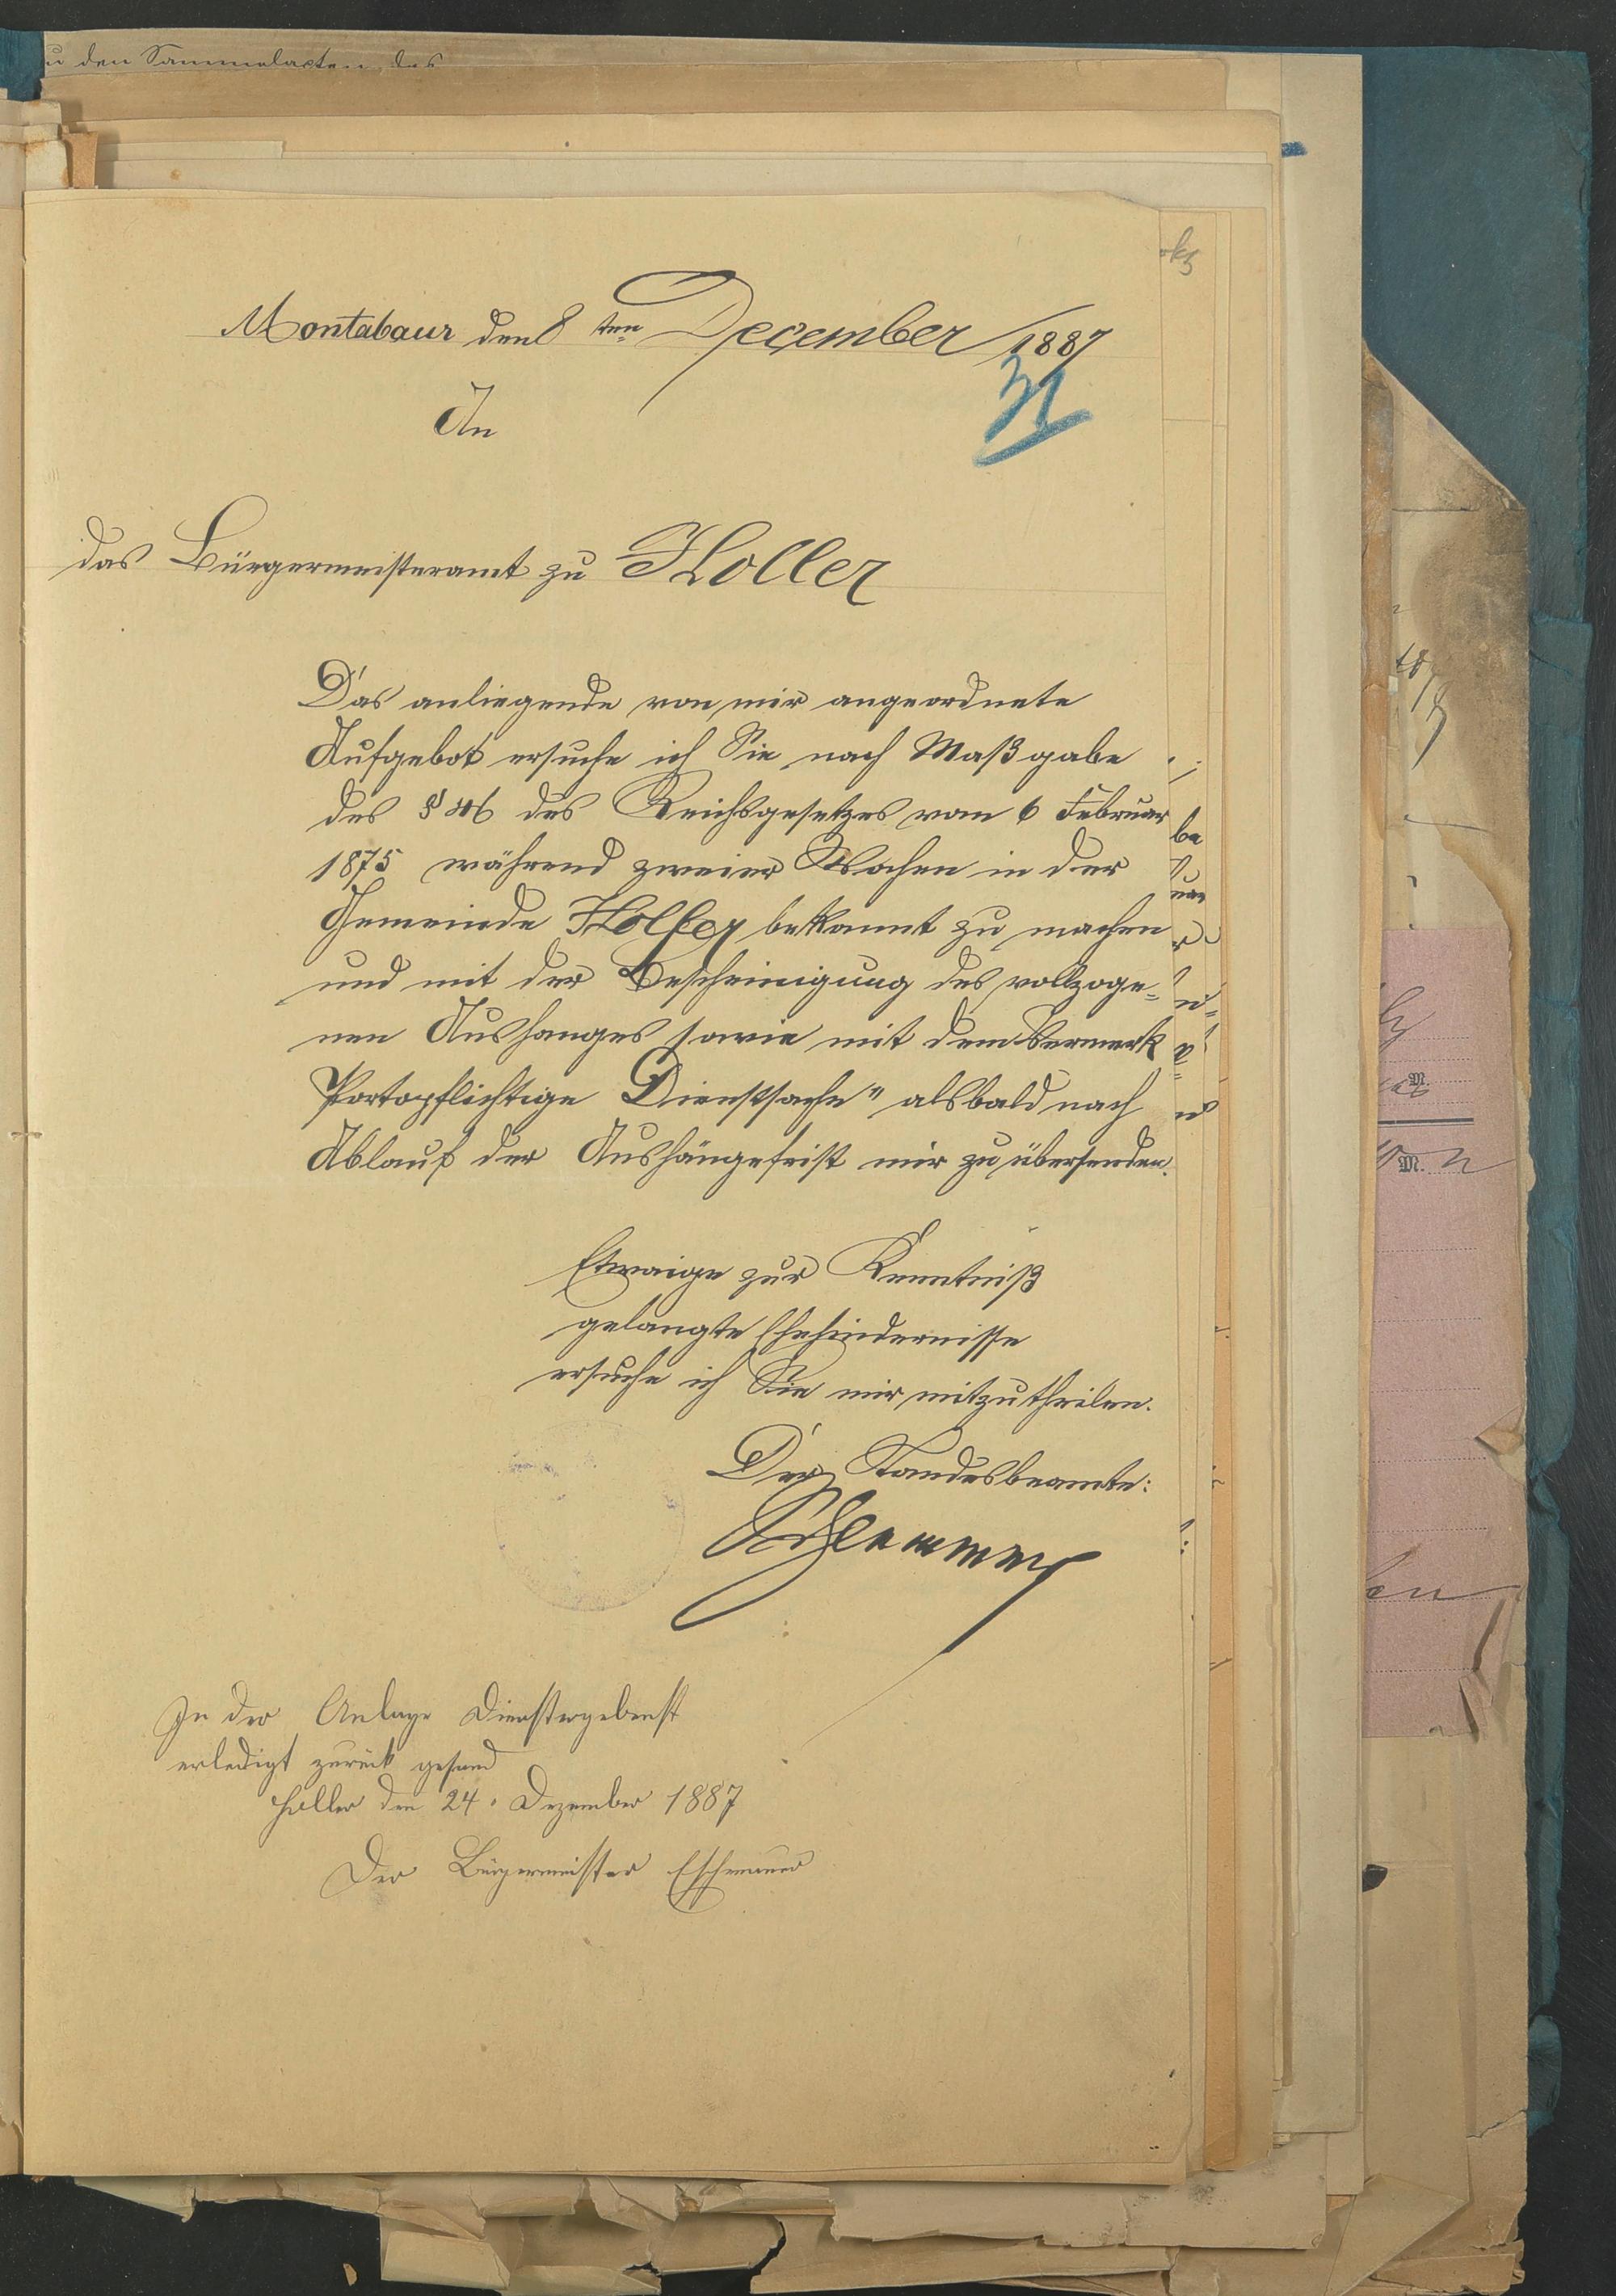 u den Sammelacten des
Montabaur den 8 ten December 1887
31
An
das Bürgermeisteramt zu Holler
Das anliegende von mir angeordnete
Aufgebot ersuche ich Sie nach Maßgabe
des § 46 des Reichsgesetzes vom 6 Februar
1875 während zweier Wochen in der
Gemeinde Holler bekannt zu machen
und mit der Bescheinigung des vollzoge=
nen Aushanges sowie mit dem Vermerk
Portopflichtige Dienstsache" alsbald nach
Ablauf der Aushängefrist mir zu übersenden.
Etwaige zur Kenntniß
gelangte Ehehindernisse
ersuche ich Sie mir mitzutheilen.
Der Standesbeamte:
Schlemmer
In der Anlage Dienstergebenst
erledigt zurück gesand
Holler den 24. Dezember 1887
Der Bürgermeister